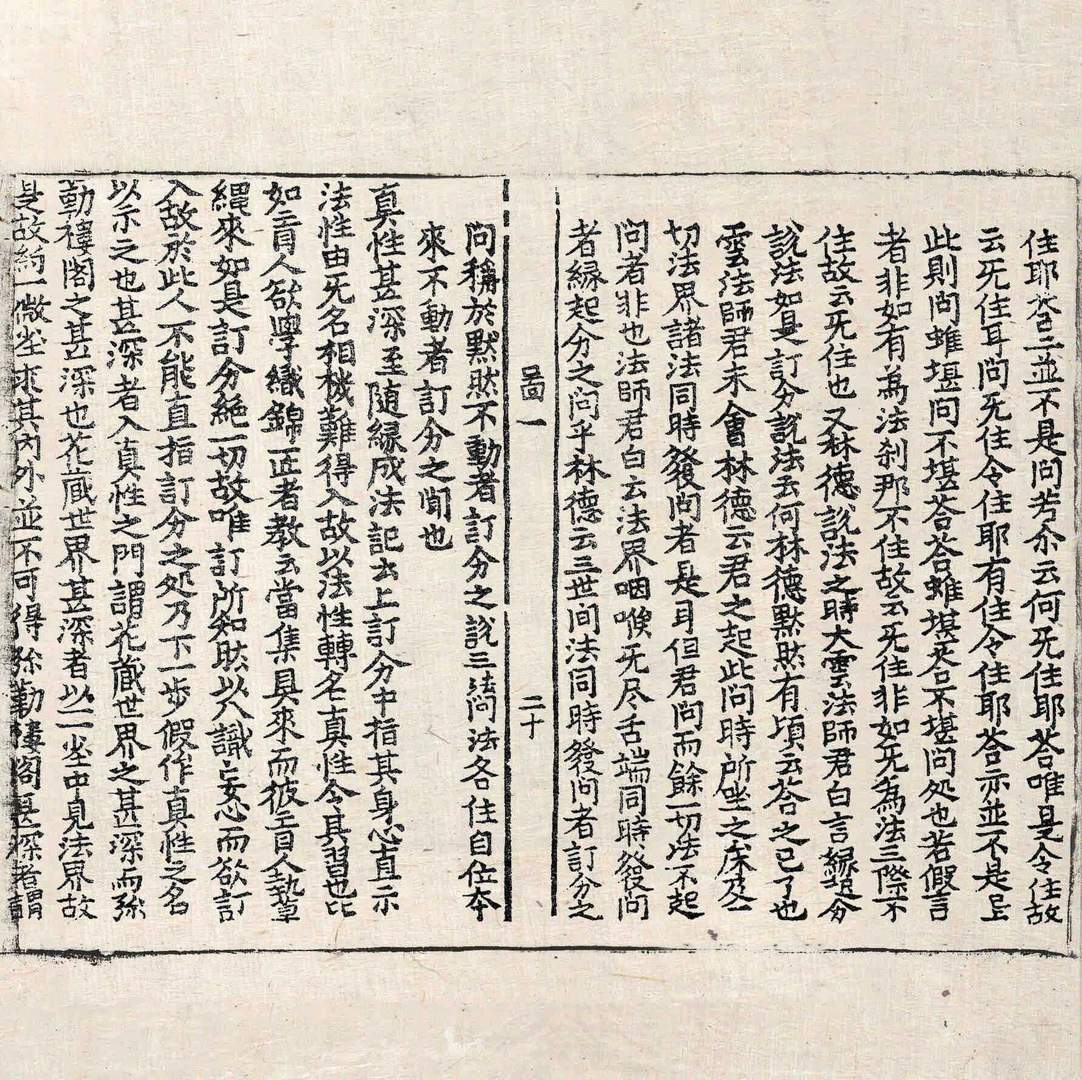 住耶答二並不是問若尒云何旡住耶答唯是令住故
云旡住耳問旡住令住耶有住令住耶答亦並不是㠯
此則問雖堪問不堪答答雖堪答不堪問処也若假言
者非如有為法刹那不住故云旡住非如旡為法三際不
住故云旡住也又林德說法之時大雲法師君白言緣起分
說法如是訂分說法云何林德黙然有頃云答之已了也
雲法師君未會林德云君之起此問時所坐之床及一
切法界諸法同時發問者是耳但君問而餘一切法不起
問者非也法師君白云法界咽喉旡尽舌端同時發問
者緣起分之問乎林德云三世间法同時發問者訂分之
啚一 二十
问稱於黙然不動者訂分之說三法问法各住自位夲
來不動者訂分之聞也
真性甚深至随緣成法記云上訂分中指其身心直示
法性由旡名相機難得入故以法性轉名真性令其習也比
如盲人欲學織錦匠者教云當集具來而彼盲人執葦
縄來如是訂分絶一切故唯訂所知肰以八識妄心而欲訂
入故於此人不能直指訂分之処乃下一步假作真性之名
以示之也甚深者入真性之門謂花藏世界之甚深而弥
勒樓閣之甚深也花藏世界甚深者以一一尘中見法界故
是故約一微尘求其內外並不可得弥勒樓閣甚深者謂